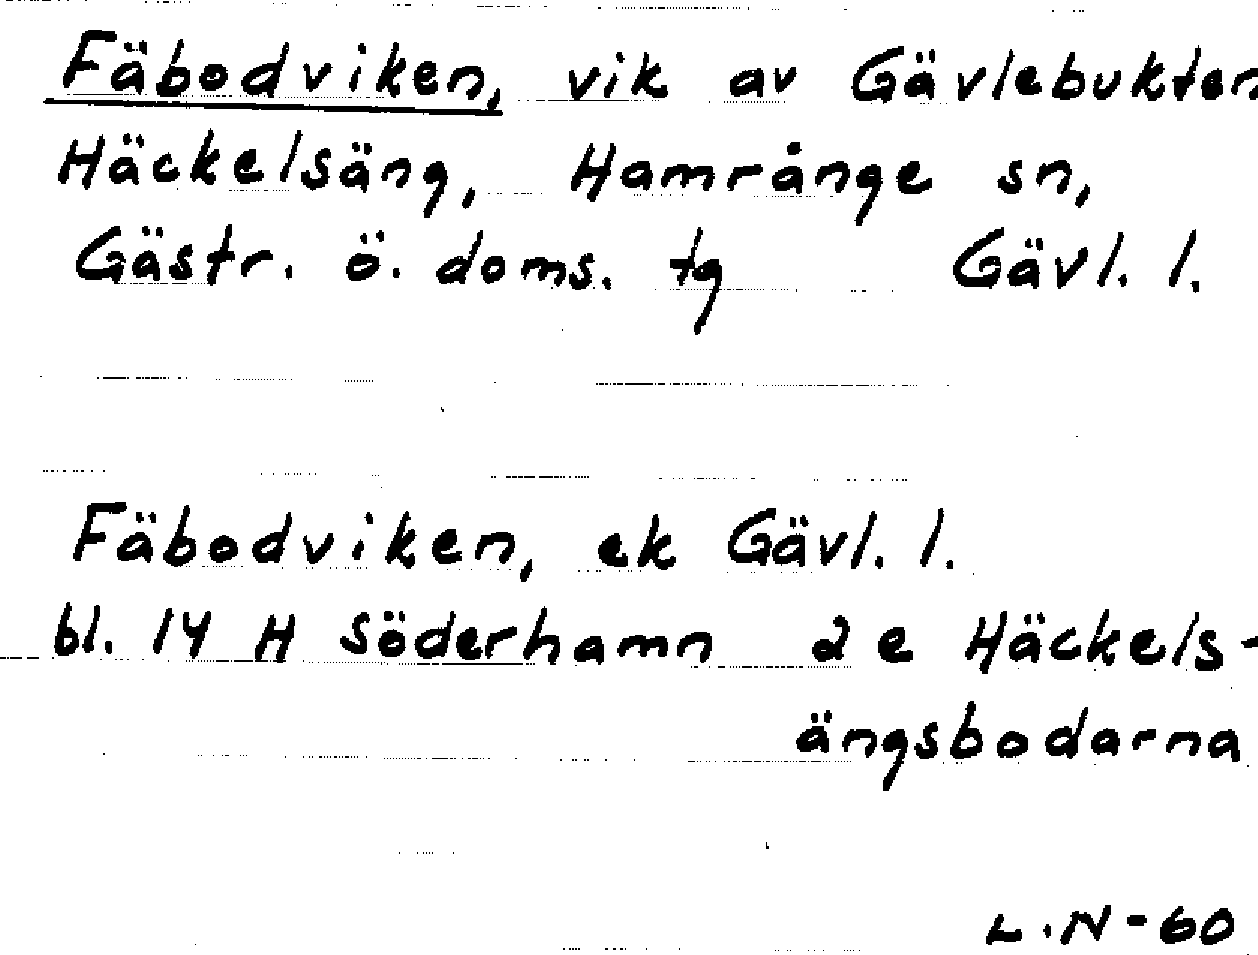 Fäbodviken, vik av Gävlebukten
Häckelsäng, Hamrånge sn,
Gästr. ö. doms. tg Gävl. l.
Fäbodviken, ek Gävl. l.
bl. 14 H Söderhamn 2 e Häckels-
ängsbodarna
L.N-60